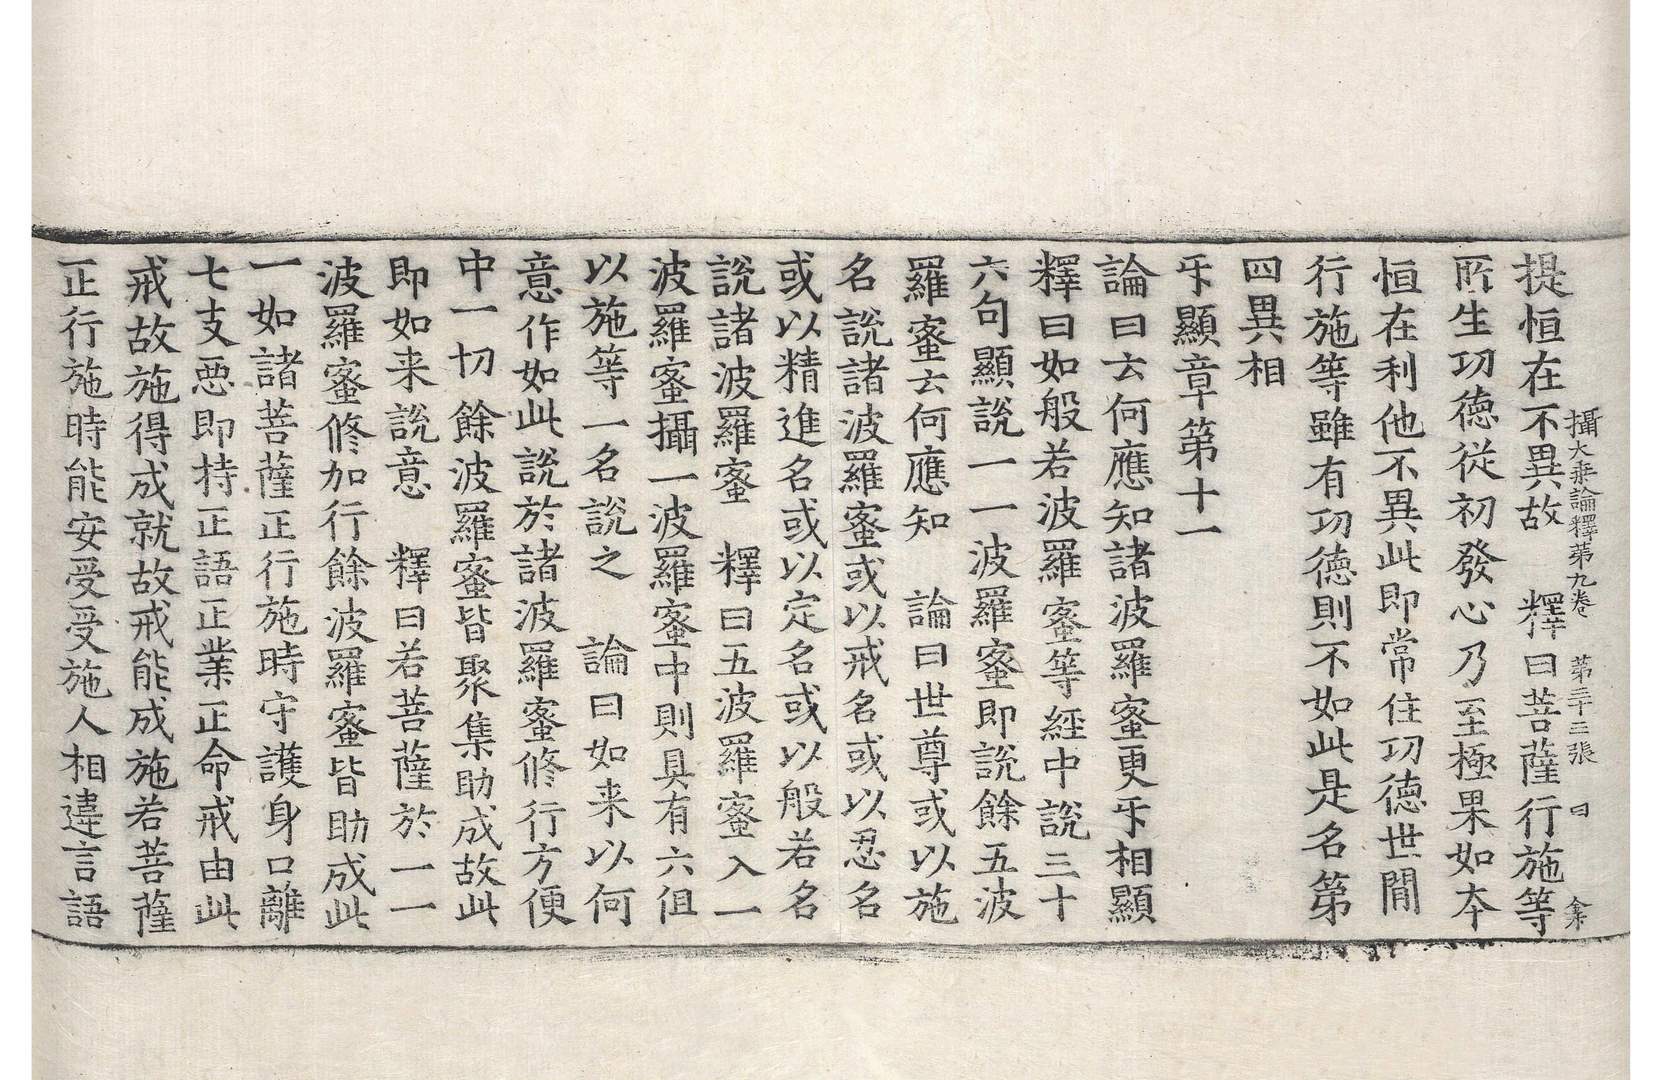 攝大乗論釋苐九巻　苐三十三張　曰
提恒在不異故　釋曰菩薩行施等
所生功徳從初發心乃至極果如夲
恒在利他不異此即常住功徳世間
行施等雖有功徳則不如此是名第
四異相
㸦顯章第十一
論曰云何應知諸波羅蜜更㸦相顯
釋曰如般若波羅蜜等經中說三十
六句顯說一一波羅蜜即說餘五波
羅蜜云何應知　論曰世尊或以施
名說諸波羅蜜或以戒名或以忍名
或以精進名或以定名或以般若名
說諸波羅蜜　釋曰五波羅蜜入一
波羅蜜攝一波羅蜜中則具有六但
以施等一名說之　論曰如来以何
意作如此說於諸波羅蜜修行方便
中一切餘波羅蜜皆聚集助成故此
即如来說意　釋曰若菩薩於一一
波羅蜜修加行餘波羅蜜皆助成此
一如諸菩薩正行施時守護身口離
七支惡即持正語正業正命戒由此
戒故施得成就故戒能成施若菩薩
正行施時能安受受施人相違言語